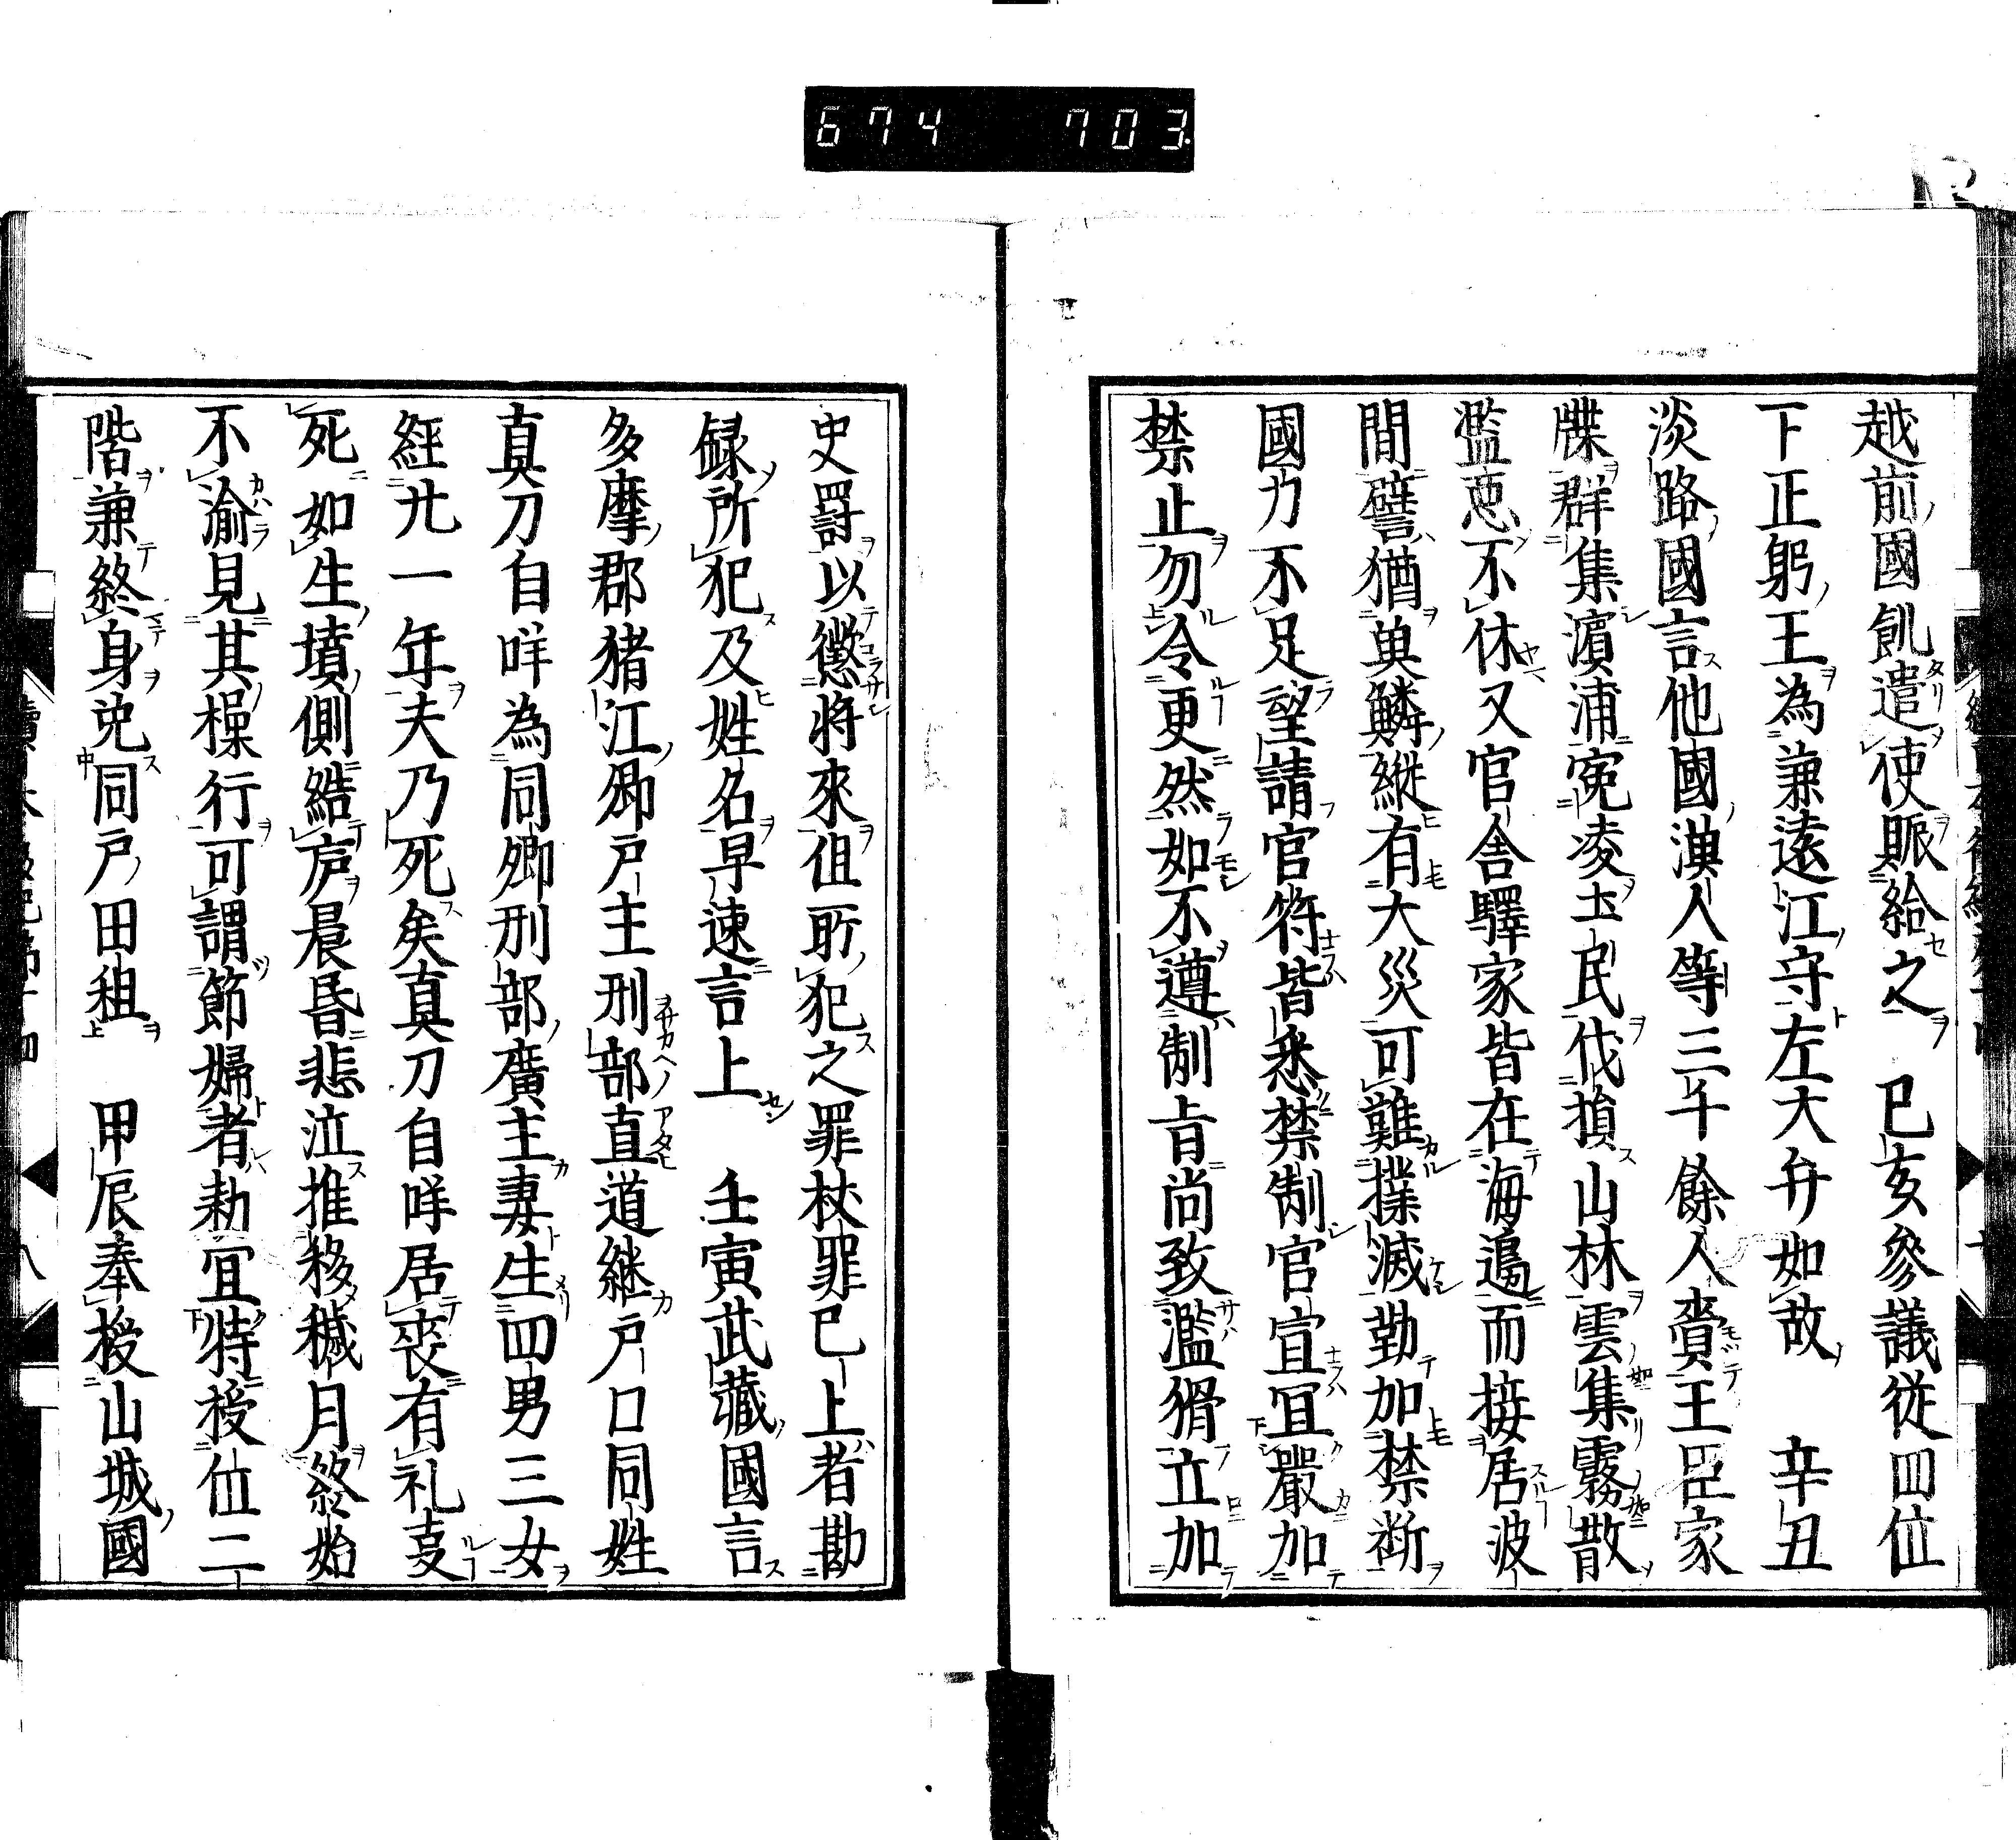 674 703
越前國飢遣使賑給之 巳亥參議從四位
下正躬王為兼遠江守左大弁如故 辛丑
淡路國言他國漁人等三千餘人賷王臣家
牒群集濱浦寃凌土民伐損山林雲集霧散
濫悪不休又官舎驛家皆在海邊而接居波
間譬猶奥鱗縱有大災可難撲滅勤加禁断
國力不足望請官符皆悉禁制官宣冝嚴加
禁止勿令更然如不遵制旨尚致濫猾立加
史罸以懲將來但所犯之罪杖罪已上者勘
録所犯及姓名早速言上 壬寅武藏國言
多摩郡猪江郷戸主刑部直道継戸口同姓
真刀自咩為同郷刑部廣主妻生四男三女
経廾一年夫乃死矣真刀自咩居喪有礼㕝
死如生墳側結庐晨昏悲泣推移穢月終始
不渝見其操行可謂節婦者勅冝特授位二
階兼終身免同戸田租 甲辰奉授山城國